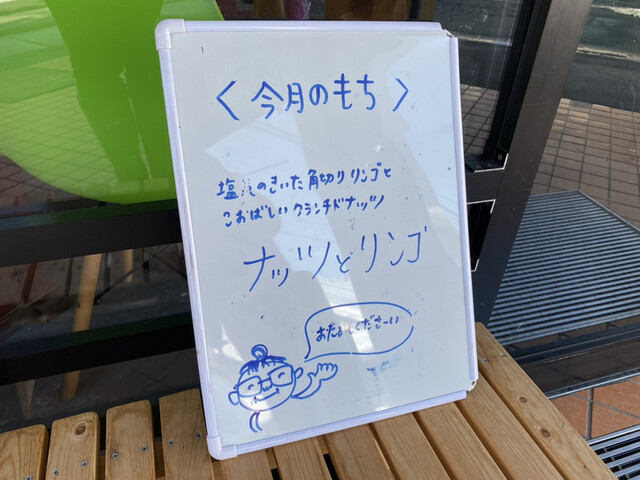 ＜今月のもち＞
塩気のきいた角切りリンゴと
こおばしいクランチドナッツ
ナッツとリンゴ
おためしくださーい